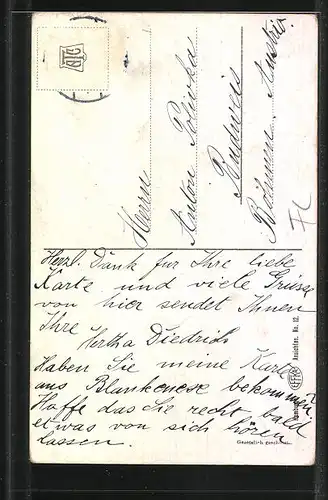 Herrn
Anton Polivka
Budweis
Böhmen. Austria.
Herzl. Dank für Ihre liebe
Karte und viele Grüsse
von hier sendet Ihnen
Ihre
Hertha Diedrich
Haben Sie meine Karte
aus Blankenese bekommen,
Hoffe das Sie recht bald
etwas von sich hören
lassen.
Ansichten. No. 12.
Gesetzlich geschützt.